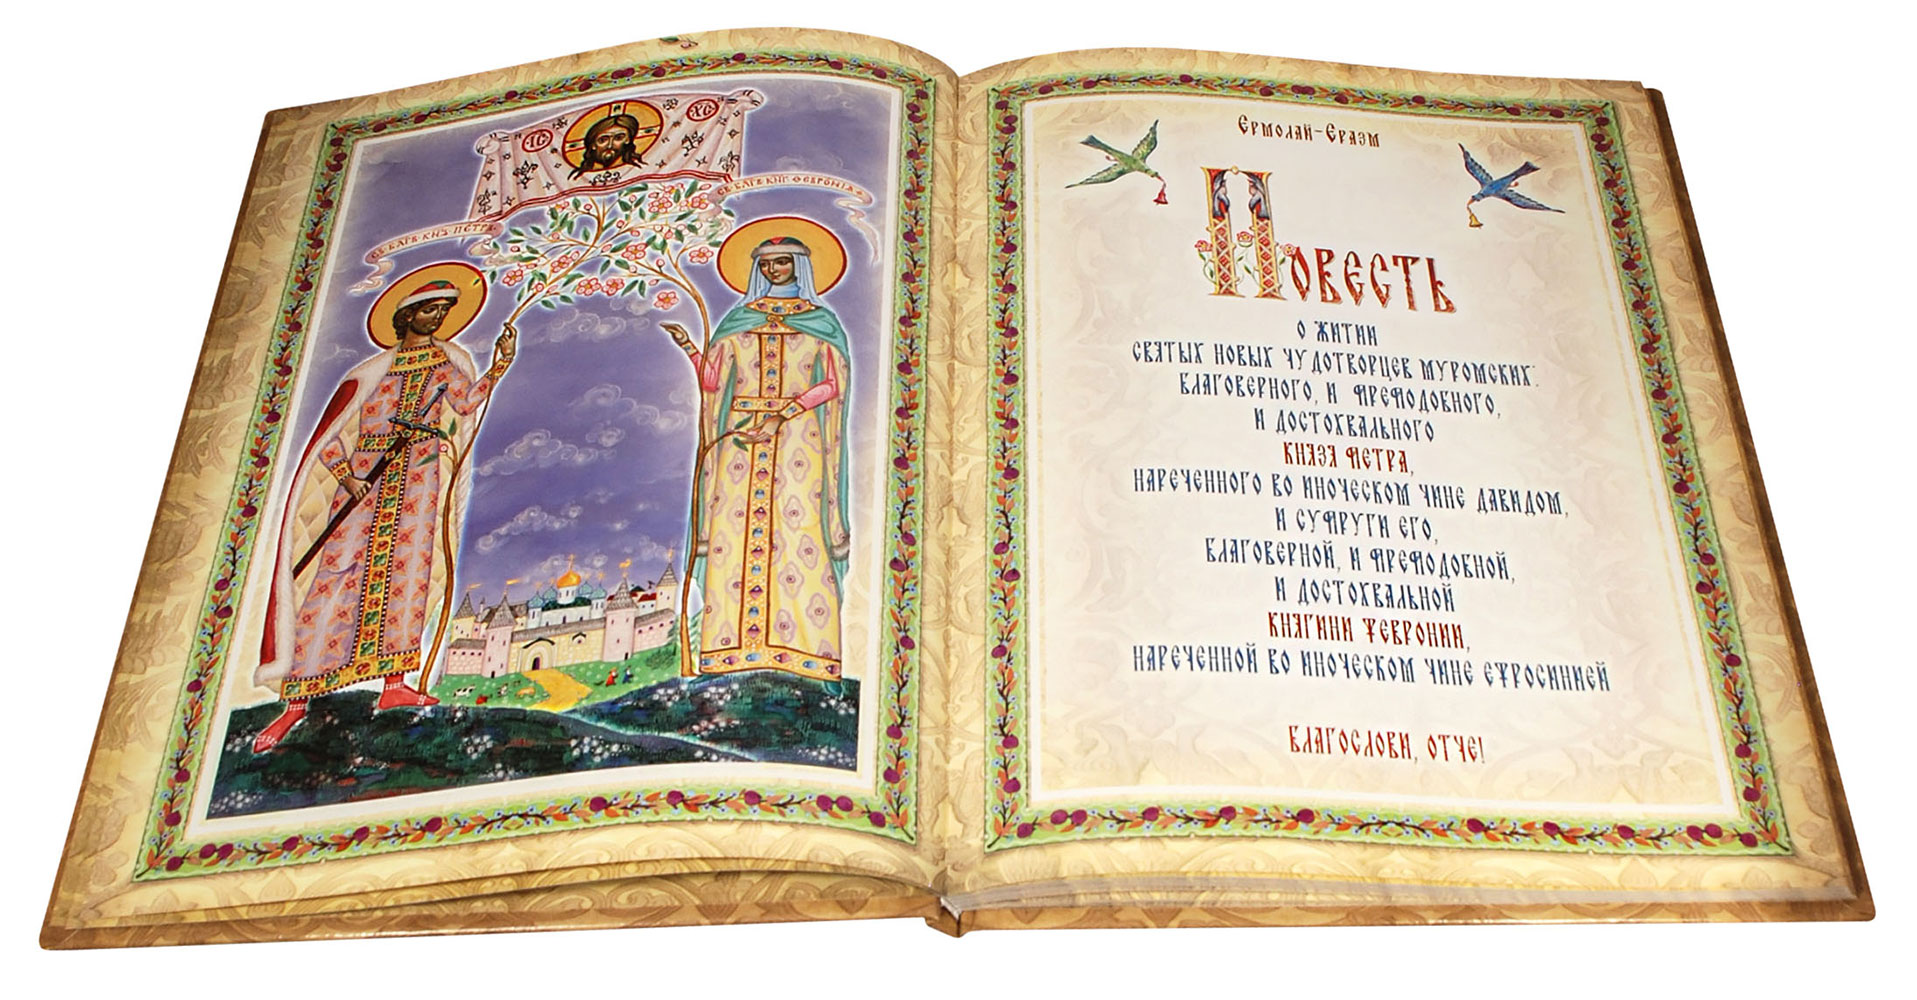 IС
ХС
СВ. БЛГВ. КНЗ. ПЕТРЪ
СВ. БЛГВ. КНГ. ФЕВРОНІА
Ермолай-Еразм
Повесть
о житии
святых новых чудотворцев муромских:
благоверного, и преподобного,
и достохвального
князя Петра,
нареченного во иноческом чине Давидом,
и супруги его,
благоверной, и преподобной,
и достохвальной
княгини Февронии,
нареченной во иноческом чине Ефросинией
Благослови, отче!